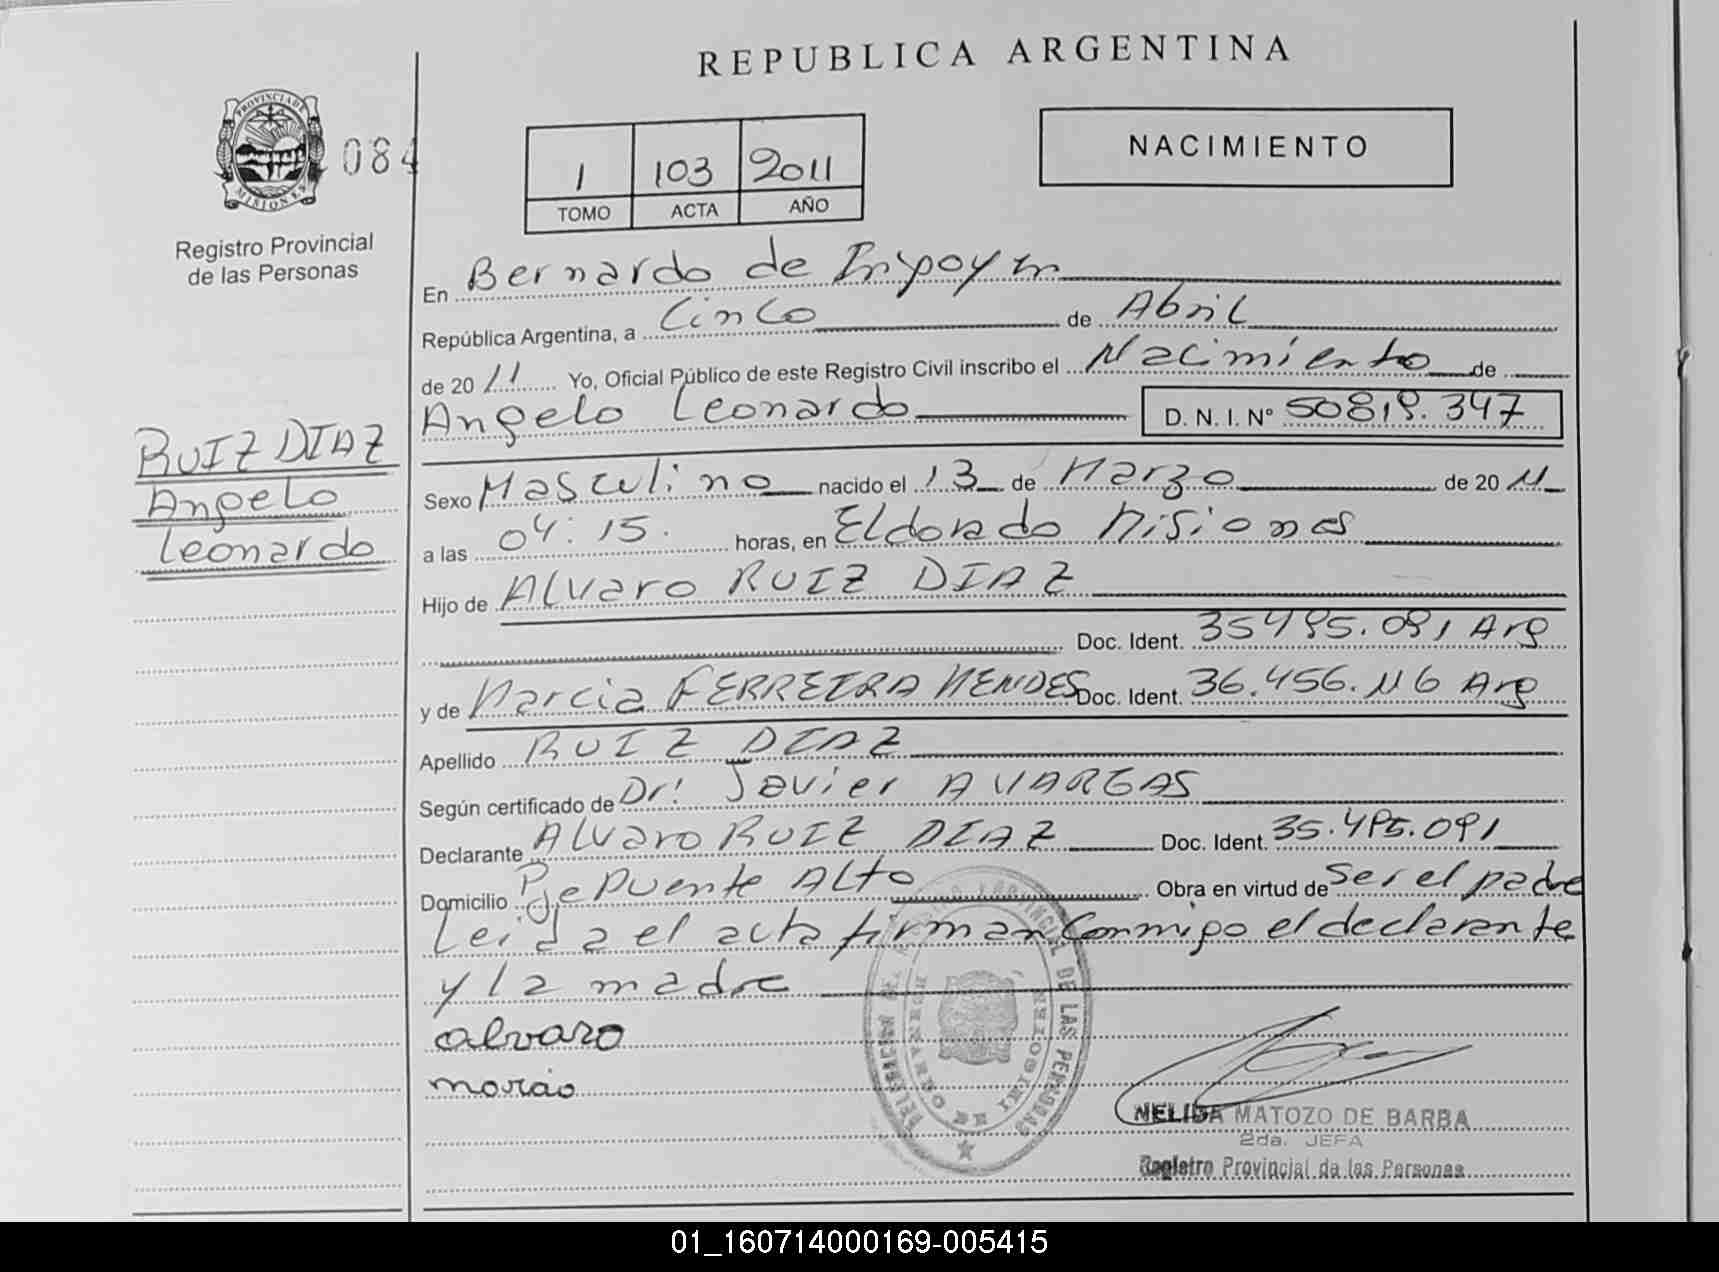 REPUBLICA ARGENTINA
PROVINCIA DE
MISIONES
084
Registro Provincial
de las Personas
1 103 2011
TOMO ACTA AÑO
NACIMIENTO
En Bernardo de Irigoyen
República Argentina, a Cinco de Abril
de 2011 Yo, Oficial Público de este Registro Civil inscribo el Nacimiento de
Angelo Leonardo D. N. I. Nº 50819.347
RUIZ DIAZ
Angelo
Leonardo
Sexo Masculino nacido el 13 de Marzo de 2011
a las 04:15. horas, en Eldorado Misiones
Hijo de Alvaro RUIZ DIAZ
Doc. Ident. 35495.091 Arg
y de Marcia FERREIRA MENDES Doc. Ident. 36.456.116 Arg
Apellido RUIZ DIAZ
Según certificado de Dr: Javier A VARGAS
Declarante Alvaro RUIZ DIAZ Doc. Ident. 35.495.091
Domicilio Pje Puente Alto Obra en virtud de Ser el padre
Leida el acta firman Conmigo el declarante
y la madre
alvaro
NELIDA MATOZO DE BARBA
2da. JEFA
Registro Provincial de las Personas
DE LAS PERSONAS
01_160714000169-005415